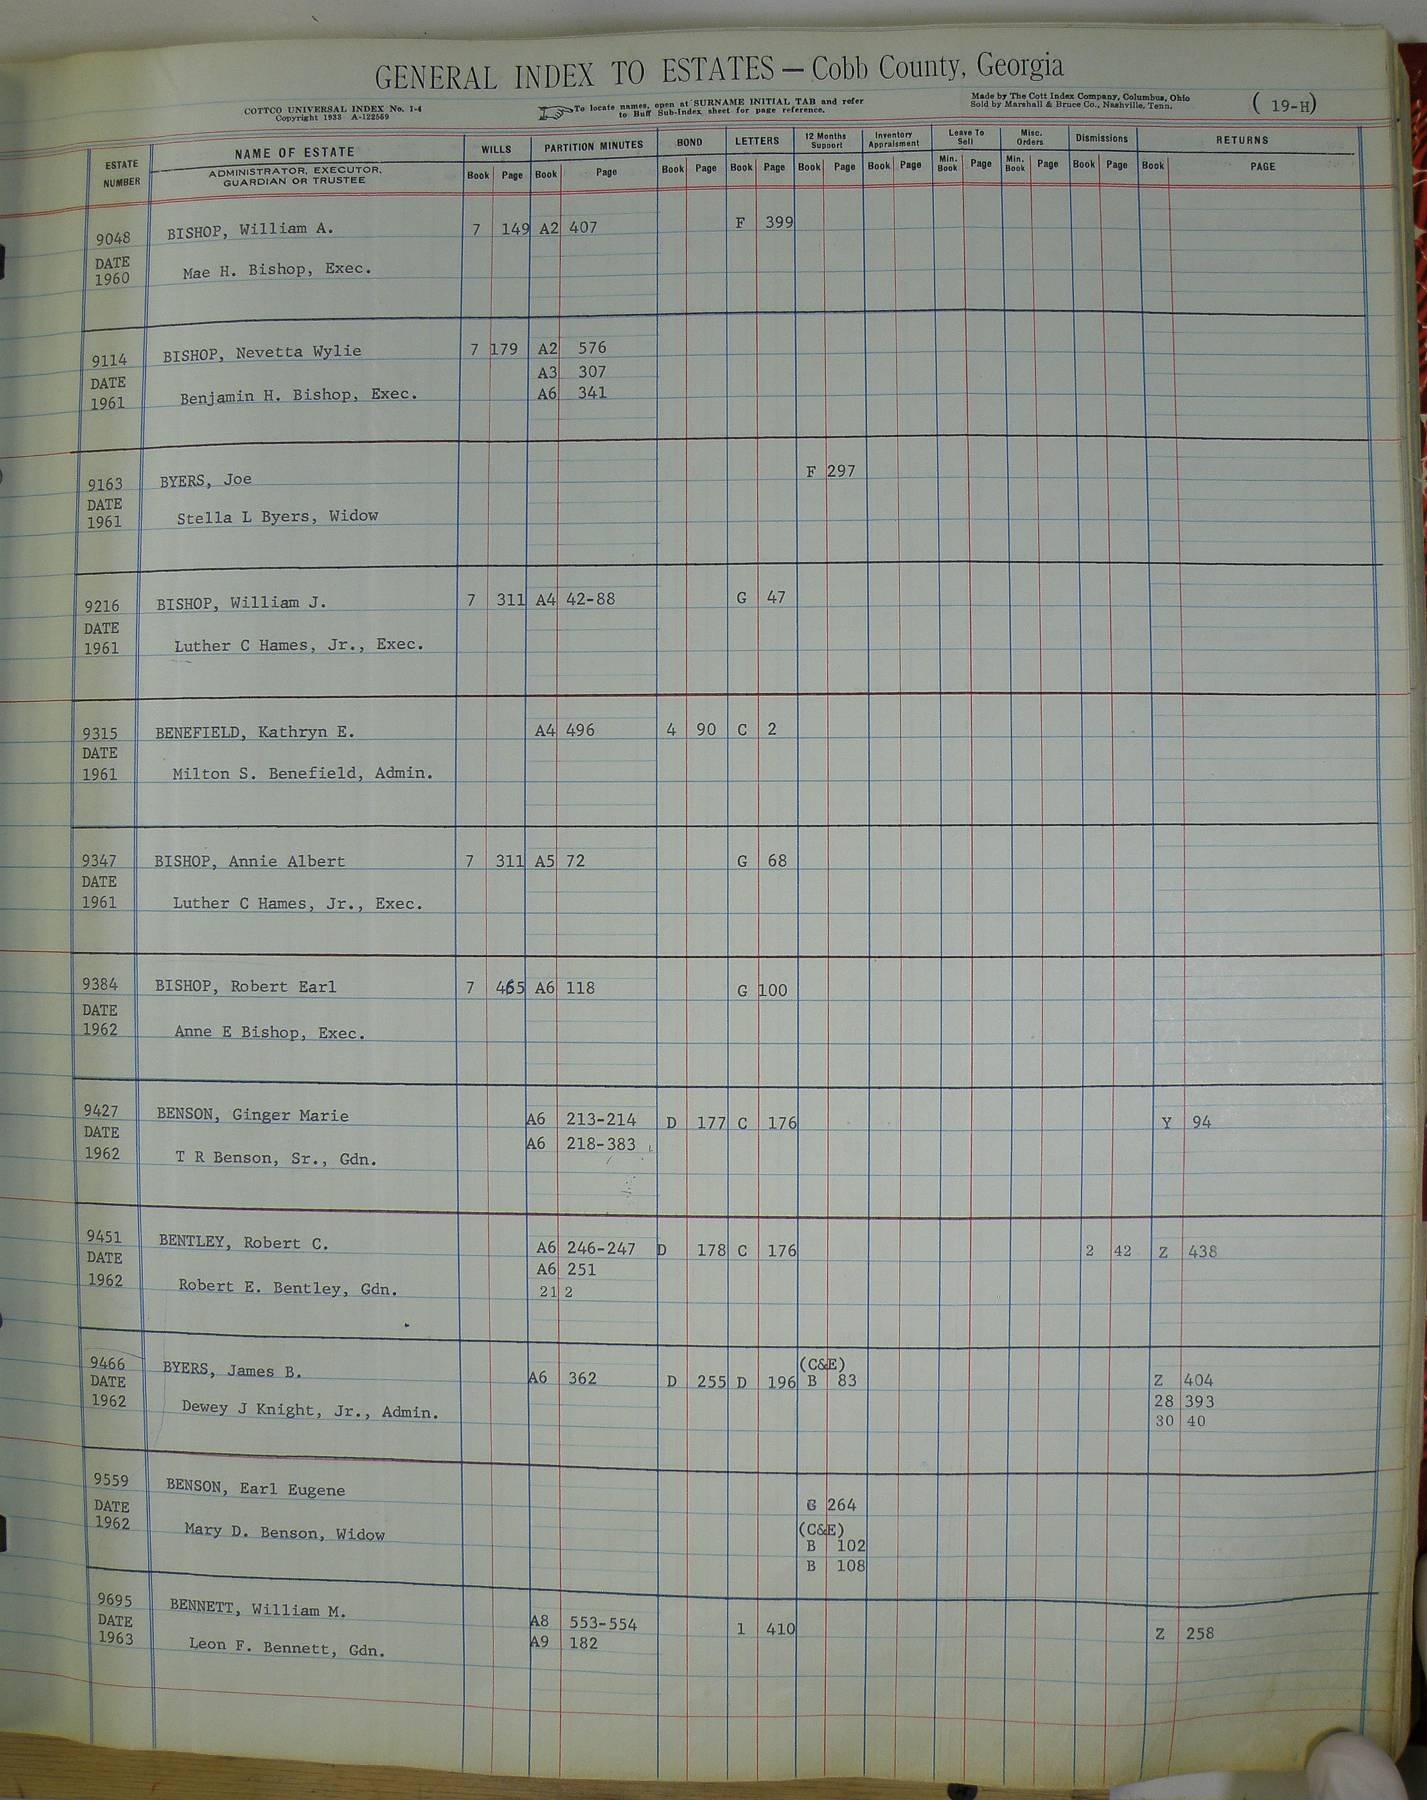 GENERAL INDEX TO ESTATES — Cobb County, Georgia
COTTCO UNIVERSAL INDEX No. 1-4
Copyright 1933 A-122559
To locate names, open at SURNAME INITIAL TAB and refer
to Buff Sub-Index sheet for page reference.
Made by The Cott Index Company, Columbus, Ohio
Sold by Marshall & Bruce Co., Nashville, Tenn.
( 19-H)
ESTATE NUMBER
NAME OF ESTATE
ADMINISTRATOR, EXECUTOR,
GUARDIAN OR TRUSTEE
WILLS PARTITION MINUTES BOND LETTERS 12 Months Support Inventory Appraisment Leave To Sell Misc. Orders Dismissions RETURNS
Book Page Book Page Book Page Book Page Book Page Book Page Min. Book Page Min. Book Page Book Page Book PAGE
9048 BISHOP, William A. 7 149 A2 407 F 399
DATE
1960 Mae H. Bishop, Exec.
9114 BISHOP, Nevetta Wylie 7 179 A2 576
DATE A3 307
1961 Benjamin H. Bishop, Exec. A6 341
9163 BYERS, Joe F 297
DATE
1961 Stella L Byers, Widow
9216 BISHOP, William J. 7 311 A4 42-88 G 47
DATE
1961 Luther C Hames, Jr., Exec.
9315 BENEFIELD, Kathryn E. A4 496 4 90 C 2
DATE
1961 Milton S. Benefield, Admin.
9347 BISHOP, Annie Albert 7 311 A5 72 G 68
DATE
1961 Luther C Hames, Jr., Exec.
9384 BISHOP, Robert Earl 7 465 A6 118 G 100
DATE
1962 Anne E Bishop, Exec.
9427 BENSON, Ginger Marie A6 213-214 D 177 C 176 Y 94
DATE A6 218-383
1962 T R Benson, Sr., Gdn.
9451 BENTLEY, Robert C. A6 246-247 D 178 C 176 2 42 Z 438
DATE A6 251
1962 Robert E. Bentley, Gdn. 21 2
9466 BYERS, James B. (C&E)
DATE A6 362 D 255 D 196 B 83 Z 404
1962 Dewey J Knight, Jr., Admin. 28 393
30 40
9559 BENSON, Earl Eugene
DATE G 264
1962 Mary D. Benson, Widow (C&E)
B 102
B 108
9695 BENNETT, William M.
DATE A8 553-554 1 410 Z 258
1963 Leon F. Bennett, Gdn. A9 182